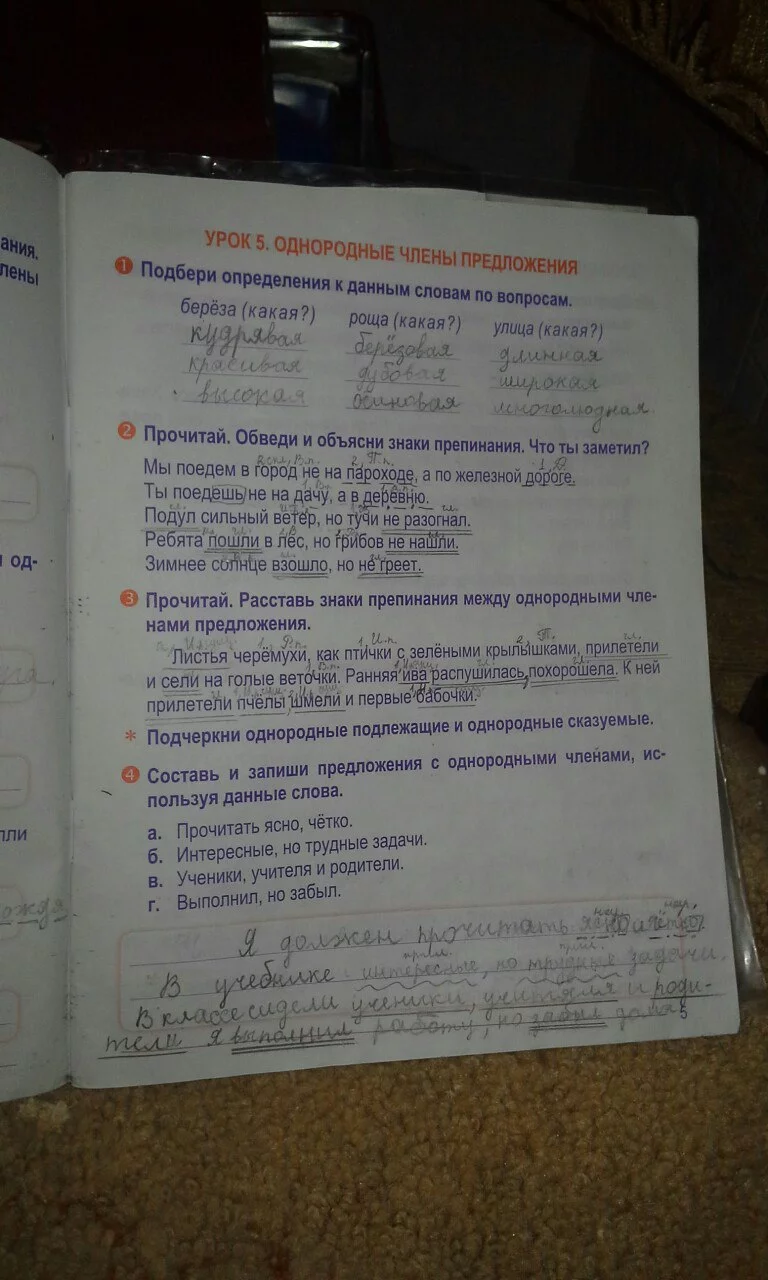 ания.
лены
од-
пли
ождя
УРОК 5. ОДНОРОДНЫЕ ЧЛЕНЫ ПРЕДЛОЖЕНИЯ
1 Подбери определения к данным словам по вопросам.
берёза (какая?) роща (какая?) улица (какая?)
кудрявая берёзовая длинная
красивая дубовая широкая
высокая осиновая многолюдная
2 Прочитай. Обведи и объясни знаки препинания. Что ты заметил?
2 скл, В.п. 2, П.п. 1, Д.
Мы поедем в город не на пароходе, а по железной дороге.
Ты поедешь не на дачу, а в деревню.
Подул сильный ветер, но тучи не разогнал.
Ребята пошли в лес, но грибов не нашли.
Зимнее солнце взошло, но не греет.
3 Прочитай. Расставь знаки препинания между однородными чле-
нами предложения.
Листья черёмухи, как птички с зелёными крылышками, прилетели
и сели на голые веточки. Ранняя ива распушилась, похорошела. К ней
прилетели пчёлы, шмели и первые бабочки.
* Подчеркни однородные подлежащие и однородные сказуемые.
4 Составь и запиши предложения с однородными членами, ис-
пользуя данные слова.
а. Прочитать ясно, чётко.
б. Интересные, но трудные задачи.
в. Ученики, учителя и родители.
г. Выполнил, но забыл.
нар. нар.
Я должен прочитать ясно и чётко.
прил. прил.
В учебнике интересные, но трудные задачи.
В классе сидели ученики, учителя и роди-
тели Я выполнил работу, но забыл дома
5